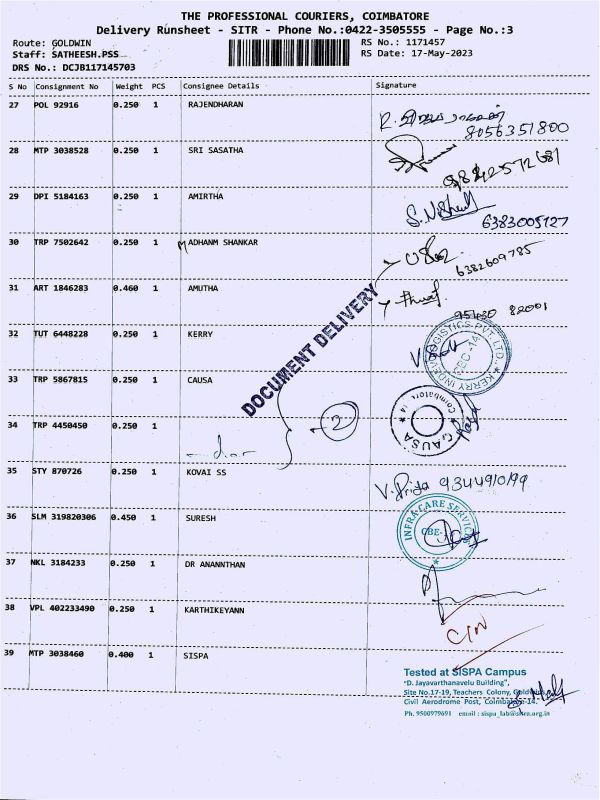 THE PROFESSIONAL COURIERS, COIMBATORE
Delivery Runsheet - SITR - Phone No.:0422-3505555 - Page No.:3
Route: GOLDWIN RS No.: 1171457
Staff: SATHEESH.PSS RS Date: 17-May-2023
DRS No.: DCJB117145703
S No Consignment No Weight PCS Consignee Details Signature
27 POL 92916 0.250 1 RAJENDHARAN
8056351800
28 MTP 3038528 0.250 1 SRI SASATHA
29 DPI 5184163 0.250 1 AMIRTHA
6383005127
30 TRP 7502642 0.250 1 MADHANM SHANKAR
6382609785
31 ART 1846283 0.460 1 AMUTHA
DOCUMENT DELIVERY
32 TUT 6448228 0.250 1 KERRY
KERRY INDEV LOGISTICS PVT. LTD.
CBC-14
33 TRP 5867815 0.250 1 CAUSA
CAUSA
Coimbatore 14
34 TRP 4450450 0.250 1
2
35 STY 870726 0.250 1 KOVAI SS
V. Priya 9344910199
36 SLM 319820306 0.450 1 SURESH
INFRA-CARE SERVICES
CBE-
37 NKL 3184233 0.250 1 DR ANANNTHAN
38 VPL 402233490 0.250 1 KARTHIKEYANN
C/N
39 MTP 3038460 0.400 1 SISPA
Tested at SISPA Campus
"D. Jayavarthanavelu Building",
Site No.17-19, Teachers Colony, Goldwins,
Civil Aerodrome Post, Coimbatore-14.
Ph. 9500979691 email : sispa_lab@